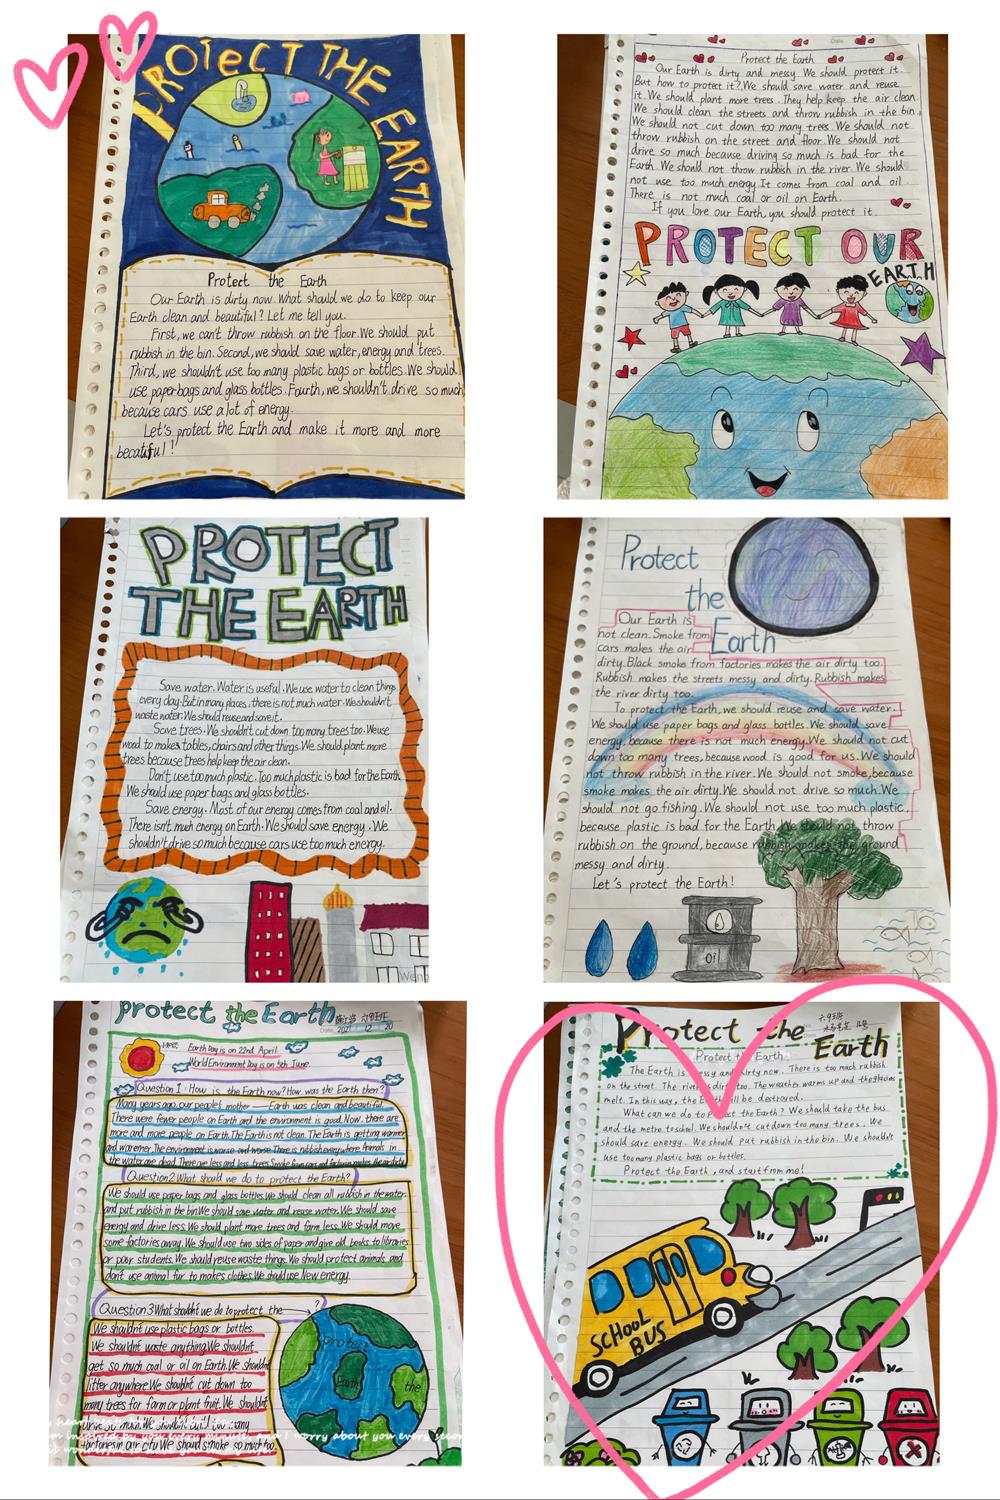 PROTECT THE EARTH
Protect the Earth
Our Earth is dirty now. What should we do to keep our
Earth clean and beautiful? Let me tell you.
First, we can't throw rubbish on the floor. We should put
rubbish in the bin. Second, we should save water, energy and trees.
Third, we shouldn't use too many plastic bags or bottles. We should
use paper bags and glass bottles. Fourth, we shouldn't drive so much,
because cars use a lot of energy.
Let's protect the Earth and make it more and more
Protect the Earth
Our Earth is dirty and messy. We should protect it.
But how to protect it? We should save water and reuse
it. We should plant more trees. They help keep the air clean.
We should clean the streets and throw rubbish in the bin.
We should not cut down too many trees. We should not
throw rubbish on the street and floor. We should not
drive so much because driving so much is bad for the
Earth. We should not throw rubbish in the river. We should
not use too much energy. It comes from coal and oil.
There is not much coal or oil on Earth.
If you love our Earth, you should protect it.
PROTECT OUR
EARTH
PROTECT
THE EARTH
Save water. Water is useful. We use water to clean things
every day. But in many places, there is not much water. We shouldn't
waste water. We should reuse and save it.
Save trees. We shouldn't cut down too many trees too. We use
wood to makes tables, chairs and other things. We should plant more
trees because trees help keep the air clean.
Don't use too much plastic. Too much plastic is bad for the Earth.
We should use paper bags and glass bottles.
Save energy. Most of our energy comes from coal and oil.
There isn't much energy on Earth. We should save energy. We
shouldn't drive so much because cars use too much energy.
Protect
the
Earth
Our Earth is
not clean. Smoke from
cars makes the air
dirty. Black smoke from factories makes the air dirty too.
Rubbish makes the streets messy and dirty. Rubbish makes
the river dirty too.
To protect the Earth, we should reuse and save water.
We should use paper bags and glass bottles. We should save
energy, because there is not much energy. We should not cut
down too many trees, because wood is good for us. We should
not throw rubbish in the river. We should not smoke, because
smoke makes the air dirty. We should not drive so much. We
should not go fishing. We should not use too much plastic,
because plastic is bad for the Earth. We should not throw
rubbish on the ground, because rubbish makes the ground
messy and dirty.
Let's protect the Earth!
Oil
protect the Earth
Date 2021 12 20
Earth Day is on 22nd April.
World Environment Day is on 5th June.
Question 1: How is the Earth now? How was the Earth then?
Many years ago, our people's mother — Earth was clean and beautiful.
There were fewer people on Earth and the environment is good. Now, there are
more and more people on Earth. The Earth is not clean. The Earth is getting warmer
and warmer. The environment is worse and worse. There is rubbish everywhere. Animals in
the water are dead. There are less and less trees. Smoke from cars and factories makes the air dirty.
Question 2 What should we do to protect the Earth?
We should use paper bags and glass bottles. We should clean all rubbish in the water
and put rubbish in the bin. We should save water and reuse water. We should save
energy and drive less. We should plant more trees and farm less. We should move
some factories away. We should use two sides of paper and give old books to libraries
or poor students. We should reuse waste things. We should protect animals and
don't use animal fur to makes clothes. We should use New energy.
Question 3 What shouldn't we do to protect the ?
We shouldn't use plastic bags or bottles.
We shouldn't waste anything. We shouldn't
get so much coal or oil on Earth. We shouldn't
litter anywhere. We shouldn't cut down too
many trees for farm or plant fruit. We shouldn't
drive so much. We shouldn't build too many
in city. We should smoke so much too.
Protect
Earth
the
Protect the
Earth
Protect the Earth
The Earth is messy and dirty now. There is too much rubbish
on the street. The river is dirty too. The weather warms up and the glaciers
melt. In this way, the Earth will be destroyed.
What can we do to protect the Earth? We should take the bus
and the metro to school. We shouldn't cut down too many trees. We
should save energy. We should put rubbish in the bin. We shouldn't
use too many plastic bags or bottles.
Protect the Earth, and start from me!
SCHOOL
BUS